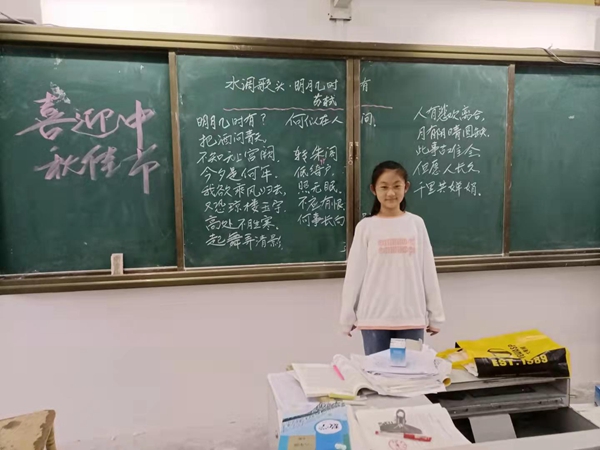 喜迎中
秋佳节
水调歌头·明月几时有
苏轼
明月几时有?
把酒问青天
不知天上宫阙
今夕是何年
我欲乘风归去
又恐琼楼玉宇
高处不胜寒
起舞弄清影
何似在人间
转朱阁
低绮户
照无眠
不应有恨
何事长向
人有悲欢离合
月有阴晴圆缺
此事古难全
但愿人长久
千里共婵娟
EST.1989